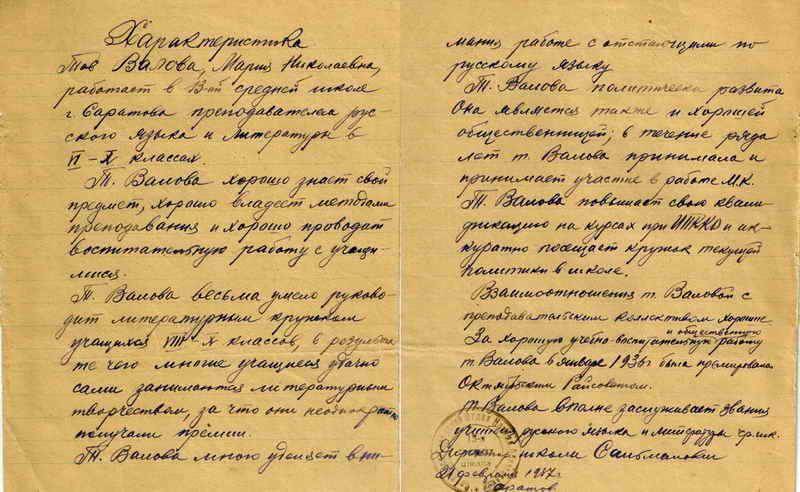 Характеристика
Тов Валова, Мария Николаевна,
работает в 13-ой средней школе
г. Саратова преподавателем рус-
ского языка и литературы в
VI-X классах.
Т. Валова хорошо знает свой
предмет, хорошо владеет методами
преподавания и хорошо проводит
воспитательную работу с учащи-
мися.
Т. Валова весьма умело руково-
дит литературным кружком
учащихся VIII-X классов, в результа-
те чего многие учащиеся удачно
сами занимаются литературным
творчеством, за что они неоднократно
получали премии.
Т. Валова много уделяет вни-
мания работе с отстающими по
русскому языку
Т. Валова политически развита
Она является также и хорошей
общественницей; в течение ряда
лет т. Валова принимала и
принимает участие в работе М.К.
Т. Валова повышает свою квали-
фикацию на курсах при и ак-
куратно посещает кружок текущей
политики в школе.
Взаимоотношения т. Валовой с
преподавательским коллективом хорошие
и общественную
За хорошую учебно-воспитательную работу
т. Валова в январе 1936 г была премирована
Октябрьским Райсоветом.
Т. Валова вполне заслуживает звания
учителя русского языка и литературы ср. шк.
Директор школы
21 февраля 1937 г
Саратов.